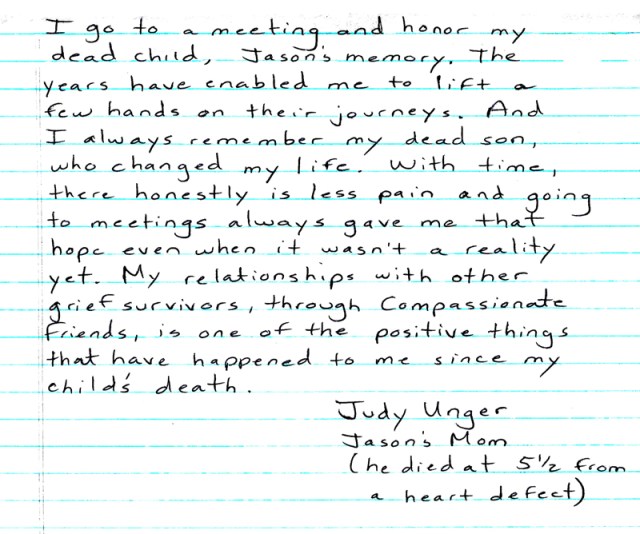 I go to a meeting and honor my
dead child, Jason's memory. The
years have enabled me to lift a
few hands on their journeys. And
I always remember my dead son,
who changed my life. With time,
there honestly is less pain and going
to meetings always gave me that
hope even when it wasn't a reality
yet. My relationships with other
grief survivors, through Compassionate
Friends, is one of the positive things
that have happened to me since my
child's death.
Judy Unger
Jason's Mom
(he died at 5½ from
a heart defect)